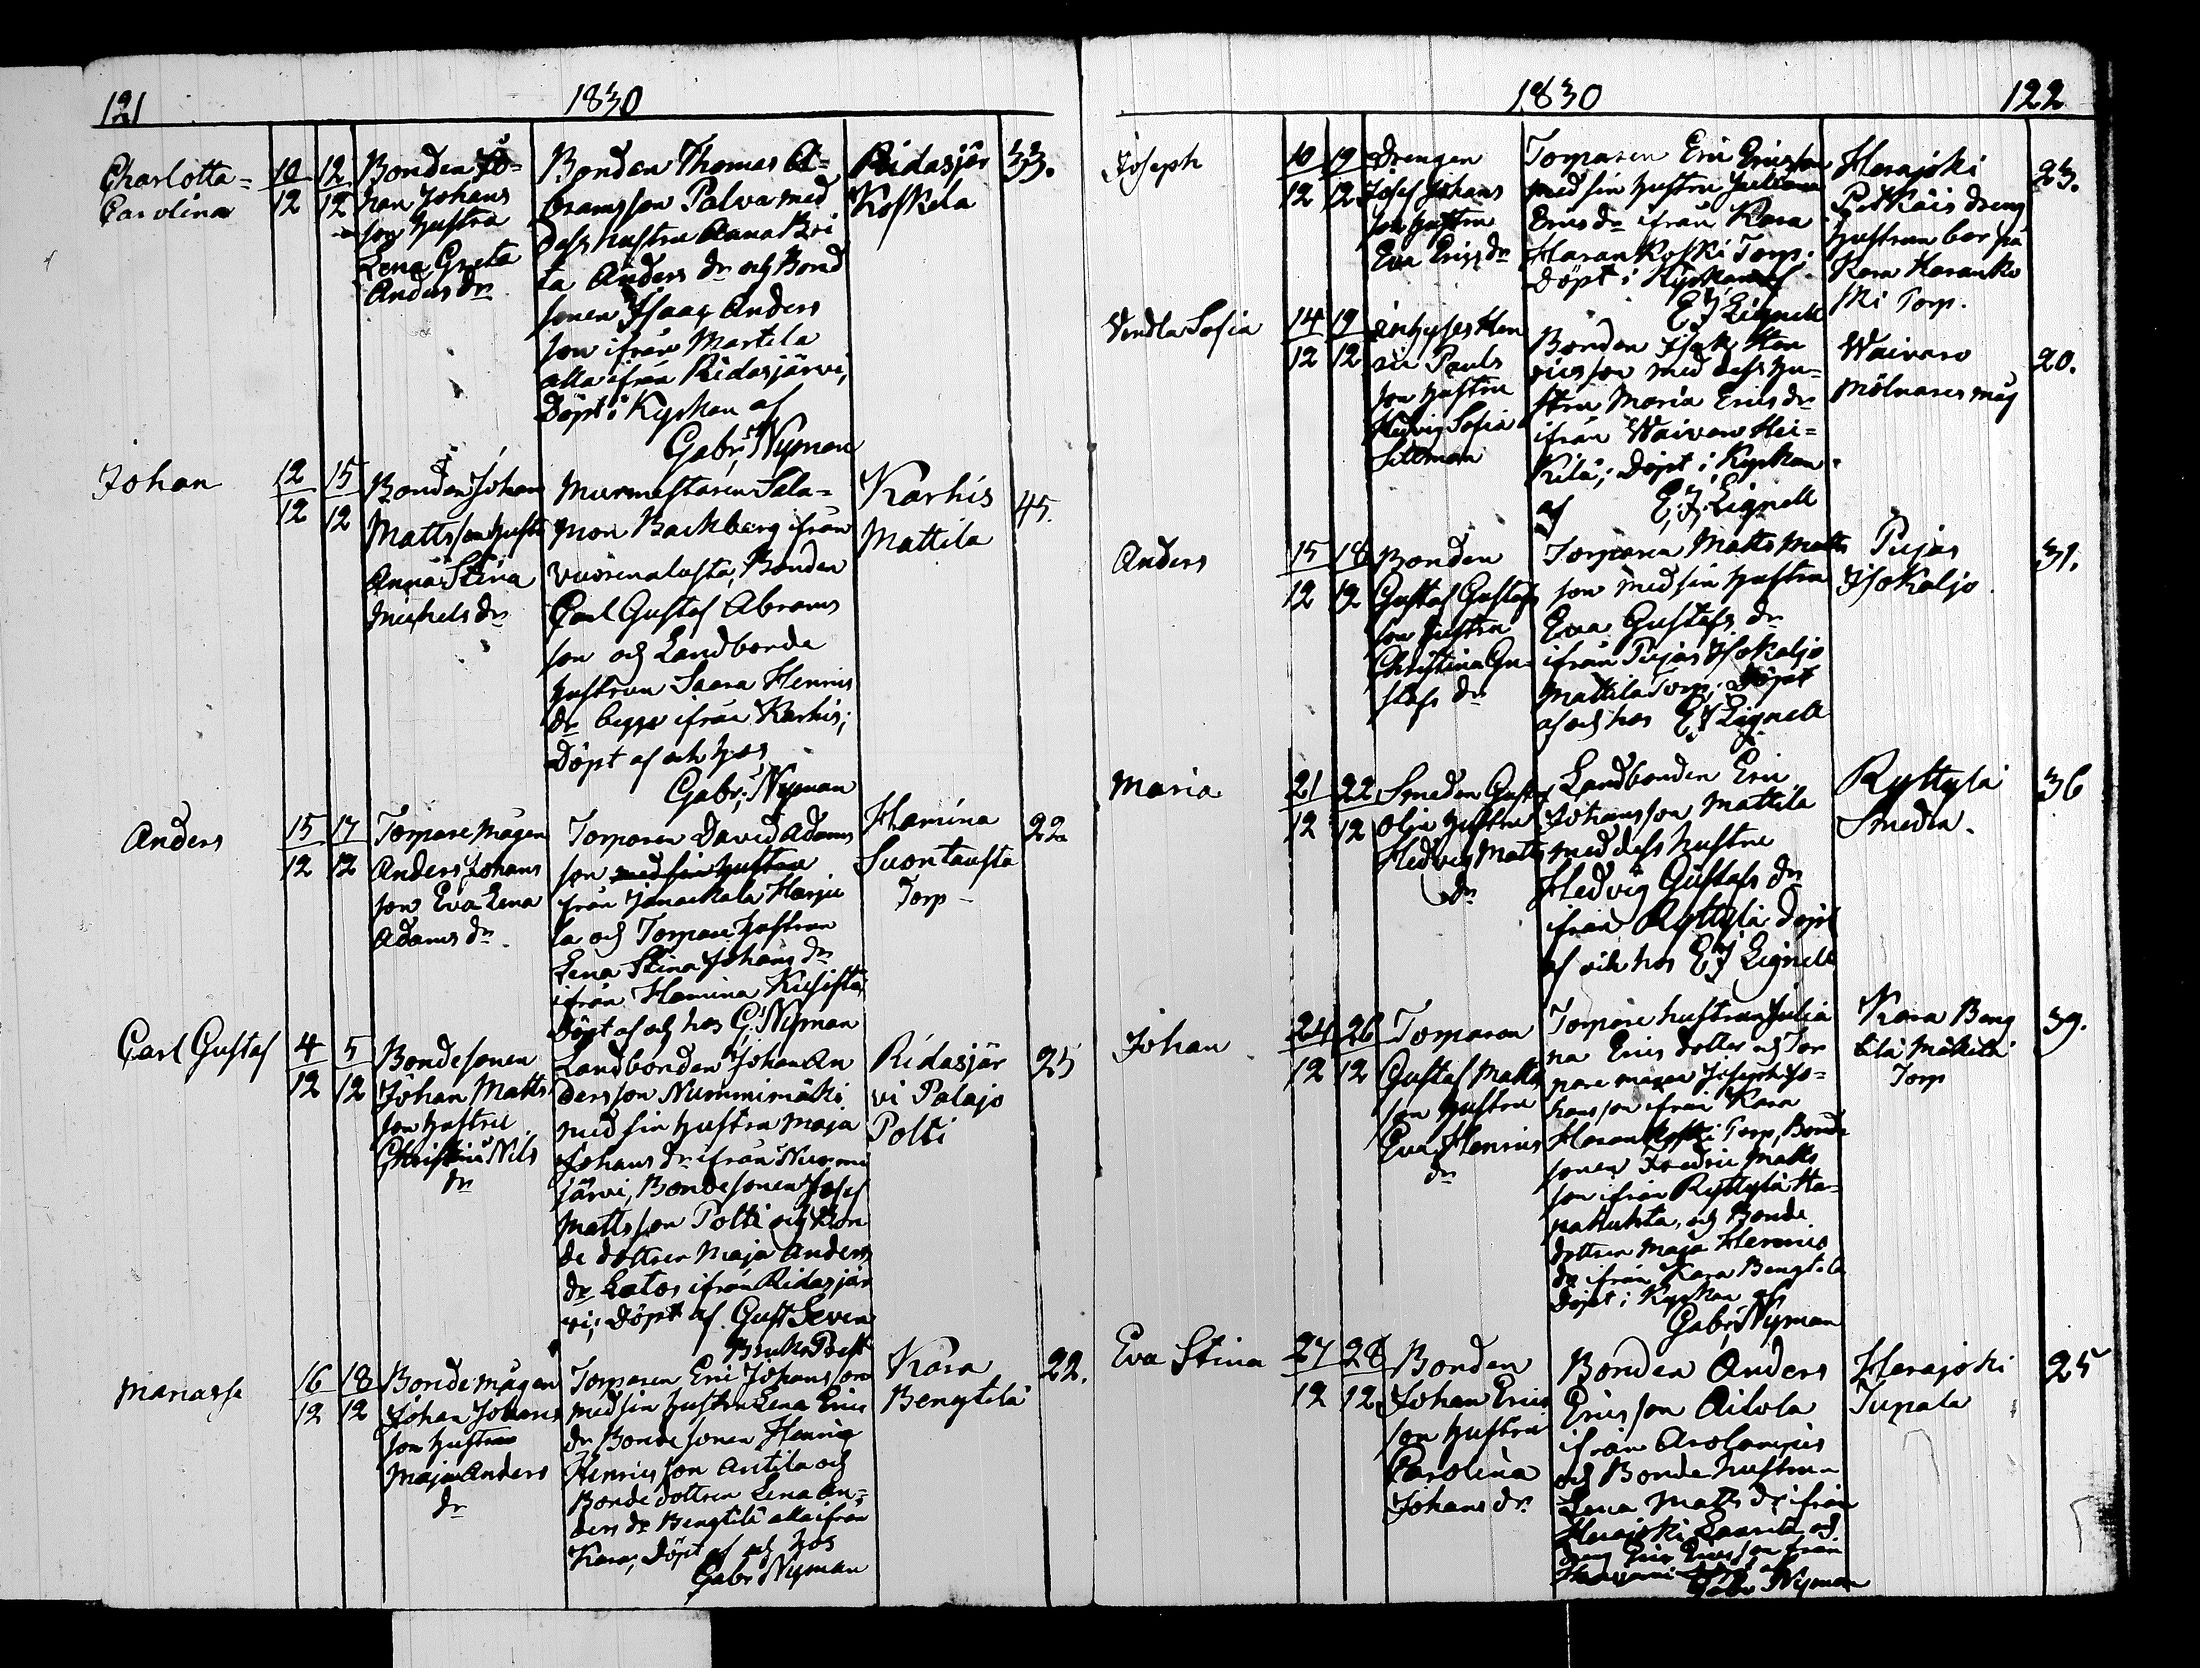 121
1830
Charlotta=
Carolina
10
12
12
12
Bonden Jo-
han Johans
son hustru
Lena Greta
Anders dr
Bonden Thomas A-
bramsson Palva med
dess hustru Anna Bri
ta Anders dr och Bond
sonen Isaac Anders
son ifrån Martila
alla ifrån Ridasjärvi,
Döpt i Kyrkan af
Gabr: Nyman
Ridasjär
Koskela
33.
Johan
12
12
15
12
Bonden Johan
Mattsson hustr
Anna Stina
Michels dr
Murmästaren Sala=
mon Backberg ifrån
Bonden
Carl Gustaf Abrams
son och Landbonde
hustrun Saara Henrics
dr begge ifrån Karhis;
Döpt af och hos
Gabr: Nyman
Karhis
Mattila
45.
Anders
15
12
17
12
Torparemågen
Anders Johans
son Eva Lena
Adams dr.
Torparen David Adams
son med sin hustru
från Janackala Harju
la och Torpare hustrun
Lena Stina Johans dr
ifrån Hamina Kusista,
Döpt af och hos G. Nyman
Hamina
Suontausta
Torp
22
Carl Gustaf
4
12
5
12
Bondesonen
Johan Matts
son hustru
Christina Nils
dr
Landbonden Johan An
dersson Nummimäki
med sin hustru Maja
Johans dr ifrån Nummi
järvi, Bondesonen Josef
Mattsson Polti och Bon
de dottren Maja Anders
dr Latos ifrån Ridasjär
vi; Döpt af Gust Seven
Bruks Prest
Ridasjär
vi Palajo
Polti
25
Manasse
16
12
18
12
Bondemågen
Johan Johans
son hustru
Maja Anders
dr
Torparen Eric Johansson
med sin hustru Lena Erics
dr Bondesonen Henric
Henricsson Antila och
Bonde dottren Lena An=
ders dr Bengtilä alla ifrån
Kara, Döpt af och hos
Gabr Nyman
Kara
Bengtilä
22.
1830
122
Joseph
10
12
19
12
Drengen
Josef Johans
son hustru
Eva Erics dr
Torparen Eric Ericsson
med sin hustru Juliana
Erics dr ifrån Kara
Haran Koski Torp.
Döpt i Kyrkan af
E J Lignell
Herajoki
Pitkäis dreng
hustrun bor på
Kara Haranko
ski Torp.
23.
Vendla Sofia
14
12
19
12
inhyses Hen
ric Pauls
son hustru
Hedvig Sofia
Littman
Bonden Isak Hen
ricsson med dess hu-
stru Maria Erics dr
ifrån Waivaro Hei=
kilä; Döpt i Kyrkan
af E, J, Lignell
Waivaro
Mölnares måg
20.
Anders
15
12
18
12
Bonden
Gustaf Gustafs
son hustru
Christina Gu-
stafs dr
Torparen Matts Matts
son med sin hustru
Eva Gustafs dr
ifrån Pujas Isokaljo
Mattila Torp; Döpt
af och hos E J Lignell
Pujas
Isokaljo.
31.
Maria
21
12
22
12
Smeden Gustaf
Olin hustru
Hedvig Matts
dr
Landbonden Eric
Johansson Mattila
med dess hustru
Hedvig Gustafs dr
ifrån Ryttylä Döpt
af och hos E J Lignell
Ryttylä
Smeden.
36
Johan
24
12
26
12
Torparen
Gustaf Matts
son hustru
Eva Henrics
dr
Torpare hustrun Julia
na Erics dotter och Tor
pare Joseph Jo=
hansson ifrån Kara
Harankoski Torp, Bonde
sonen Fredric Matts
son ifrån Ryttylä Ha-
nahuhta, och Bonde
dottren Maja Henrics
dr ifrån Kara Bengtilä
Döpt i Kyrkan af
Gabr: Nyman
Kara Beng
tilä Mäkilä
Torp
39.
Eva Stina
27
12
28
12
Bonden
Johan Erics
son hustru
Carolina
Johans dr.
Bonden Anders
Ericsson Ailola
ifrån Arolampis
och Bonde hustru-
Lena Matts dr ifrån
Herajoki Laurila och
dreng Eric Ericsson från
Gabr Nyman
Herajoki
Tupala
25